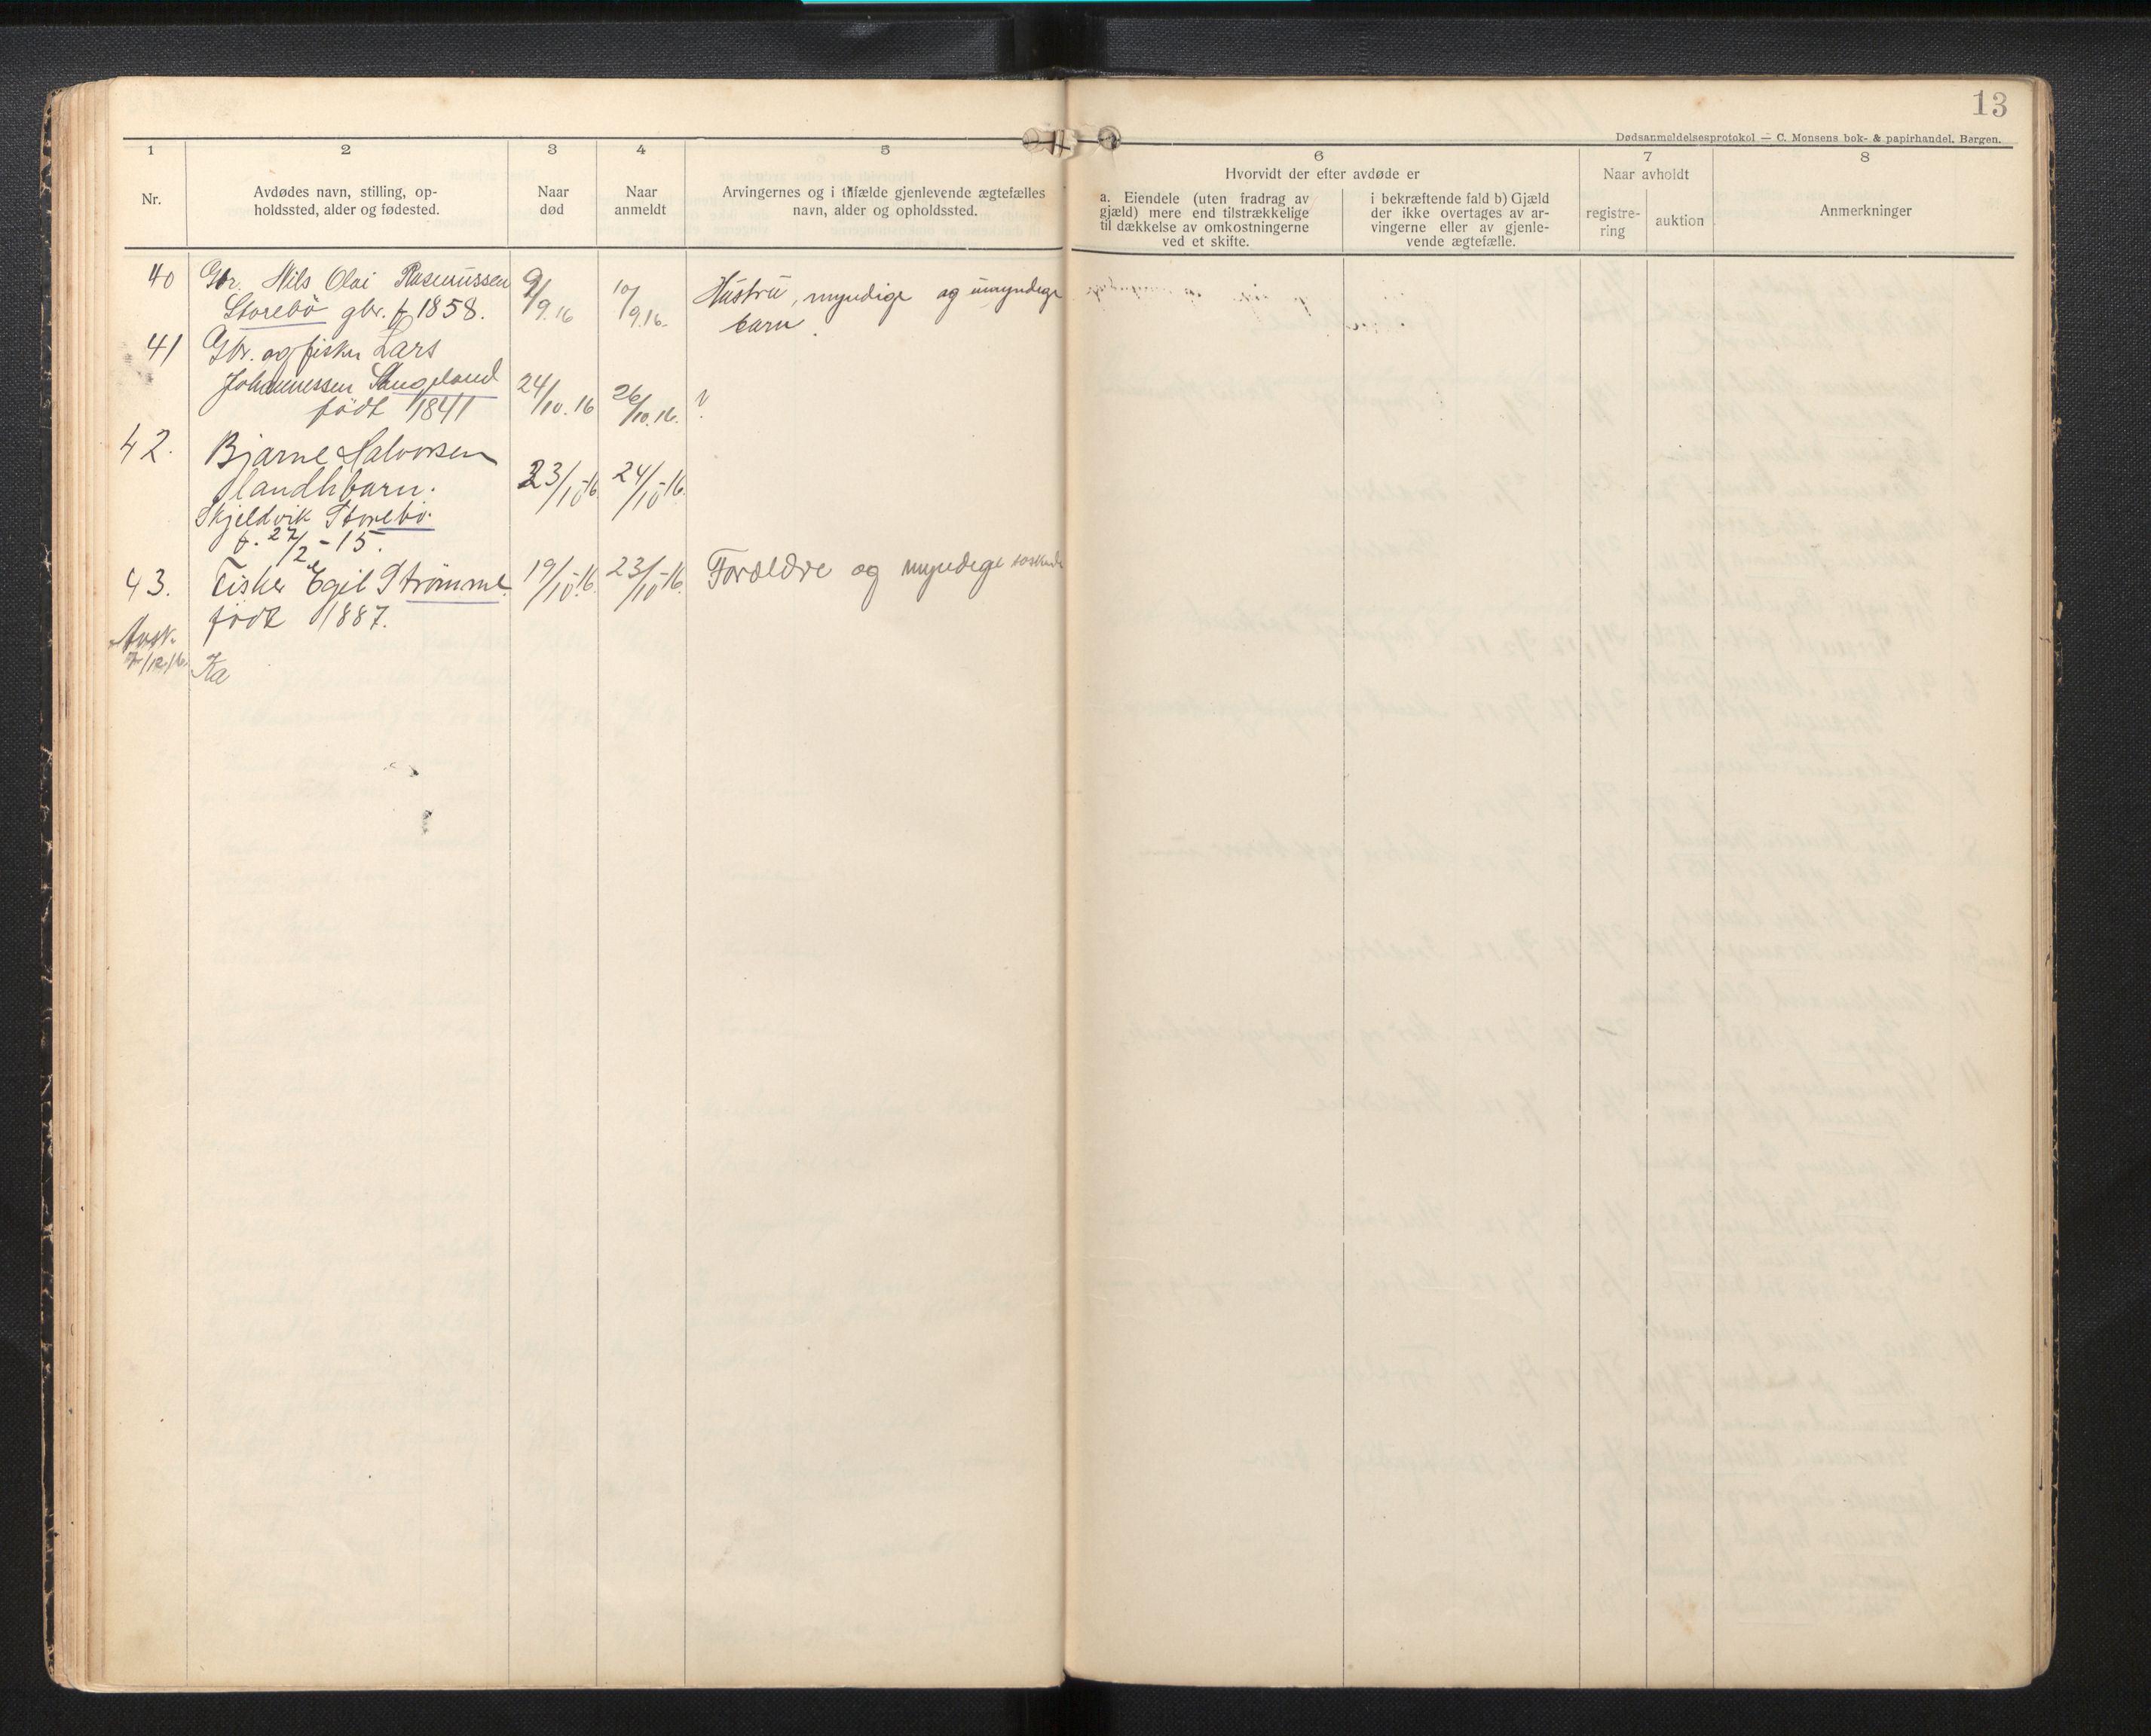 13
Dødsanmeldelsesprotokol — C. Monsens bok- & papirhandel, Bergen.
1
2
3
4
5
6
7
8
Nr.
Avdødes navn, stilling, op-
holdssted, alder og fødested.
Naar
død
Naar
anmeldt
Arvingernes og i tilfælde gjenlevende ægtefælles
navn, alder og opholdssted.
Hvorvidt der efter avdøde er
a. Eiendele (uten fradrag av
gjæld) mere end tilstrækkelige
til dækkelse av omkostningerne
ved et skifte.
i bekræftende fald b) Gjæld
der ikke overtages av ar-
vingerne eller av gjenle-
vende ægtefælle.
Naar avholdt
registre-
ring
auktion
Anmerkninger
40 Gbr. Nils Olai Rasmussen 9/9.16 10/9.16. Hustru, myndige og umyndige
Storebö gbr. f 1858. barn.
41 Gbr. og fisker Lars
Johannessen 24/10.16 26/10.16. ?
født 1841
42. Bjarne Halvorsen
23/10-16 24/10-16.
Skjeldvik Storebö.
f. 27/2-15.
43. Fisker Egil Strömme 19/10-16. 23/10-16. Forældre og myndige søskende
født 1887.
7/12.16. Ka